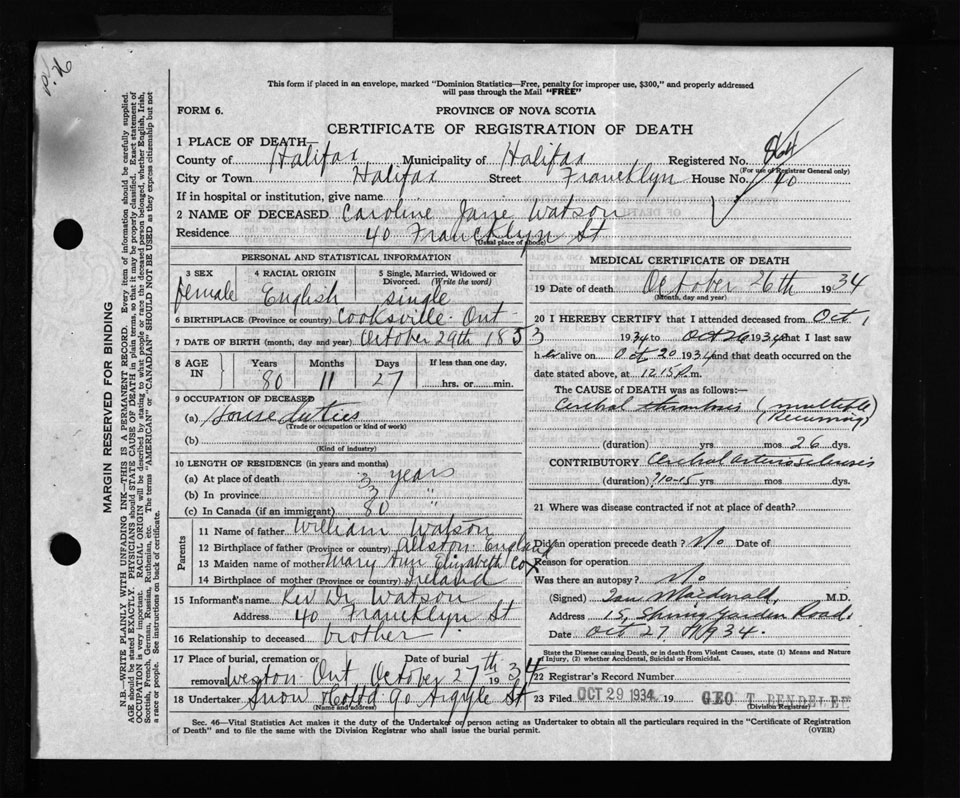 This form if placed in an envelope, marked "Dominion Statistics—Free, penalty for improper use, $300," and properly addressed
will pass through the Mail "FREE"
FORM 6.
PROVINCE OF NOVA SCOTIA
CERTIFICATE OF REGISTRATION OF DEATH
1 PLACE OF DEATH—
County of Halifax Municipality of Halifax Registered No. 864
(For use of Registrar General only)
City or Town Halifax Street Francklyn House No. 40
If in hospital or institution, give name
2 NAME OF DECEASED Caroline Jane Watson
Residence 40 Francklyn St
(Usual place of abode)
PERSONAL AND STATISTICAL INFORMATION
3 SEX female
4 RACIAL ORIGIN English
5 Single, Married, Widowed or Divorced. (Write the word) single
6 BIRTHPLACE (Province or country) Cooksville Ont
7 DATE OF BIRTH (month, day and year) October 29th 1853
8 AGE IN Years 80 Months 11 Days 27 If less than one day, hrs. or min.
9 OCCUPATION OF DECEASED
(a) House duties
(Trade or occupation or kind of work)
(b)
(Kind of industry)
10 LENGTH OF RESIDENCE (in years and months)
(a) At place of death 3 years
(b) In province 3 "
(c) In Canada (if an immigrant) 80 "
Parents
11 Name of father William Watson
12 Birthplace of father (Province or country) Alston England
13 Maiden name of mother Mary Ann Elizabeth Cox
14 Birthplace of mother (Province or country) Ireland
15 Informant's name Rev Dr Watson
Address 40 Francklyn St
16 Relationship to deceased brother
17 Place of burial, cremation or removal Weston Ont Date of burial October 27th 1934
18 Undertaker Snow & Co Ltd 90 Argyle St
(Name and address)
MEDICAL CERTIFICATE OF DEATH
19 Date of death October 26th 1934
(Month, day and year)
20 I HEREBY CERTIFY that I attended deceased from Oct 1
1934 to Oct 26 1934 that I last saw
her alive on Oct 20 1934 and that death occurred on the
date stated above, at 12.15 P.m.
The CAUSE OF DEATH was as follows:—
Cerebral thrombosis (multiple)
(recurring)
(duration) yrs mos 26 dys.
CONTRIBUTORY Cerebral arteriosclerosis
(duration) ?10-15 yrs mos dys.
21 Where was disease contracted if not at place of death?
Did an operation precede death? No Date of
Reason for operation
Was there an autopsy? No
(Signed) Ian Macdonald, M.D.
Address 15, Spring Garden Road.
Date Oct 27 1934.
State the Disease causing Death, or in death from Violent Causes, state (1) Means and Nature
of Injury, (2) whether Accidental, Suicidal or Homicidal.
22 Registrar's Record Number
23 Filed OCT 29 1934 19 GEO T. BENDELEE
(Division Registrar)
Sec. 46—Vital Statistics Act makes it the duty of the Undertaker or person acting as Undertaker to obtain all the particulars required in the "Certificate of Registration
of Death" and to file the same with the Division Registrar who shall issue the burial permit.
(OVER)
MARGIN RESERVED FOR BINDING
N.B.—WRITE PLAINLY WITH UNFADING INK—THIS IS A PERMANENT RECORD. Every item of information should be carefully supplied.
AGE should be stated EXACTLY. PHYSICIANS should STATE CAUSE OF DEATH in plain terms, so that it may be properly classified. Exact statement of
OCCUPATION is very important. RACIAL ORIGIN will be described by stating to what people or race the deceased person belonged, whether English, Irish,
Scottish, French, German, Russian, Ruthenian, etc. The terms "AMERICAN" or "CANADIAN" SHOULD NOT BE USED as they express citizenship but not
a race or people. See instructions on back of certificate.